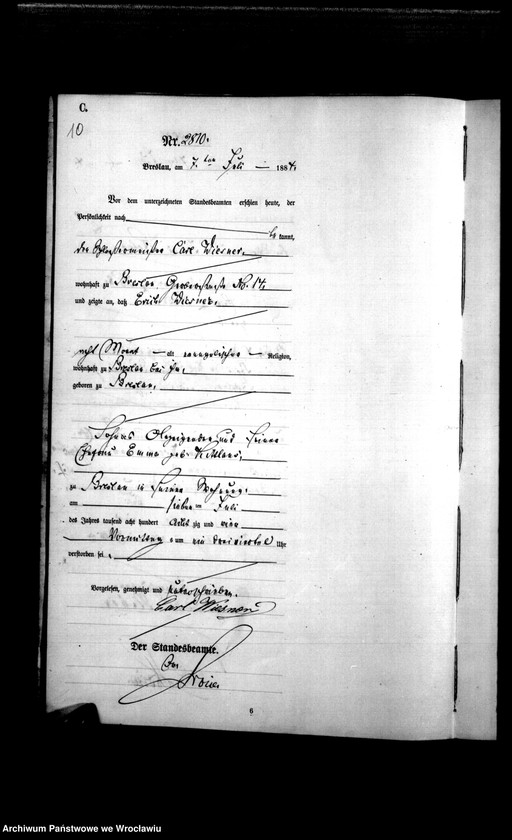 C.
10
Nr. 2810.
Breslau, am 7ten Juli 1884.
Vor dem unterzeichneten Standesbeamten erschien heute, der
Persönlichkeit nach
be kannt,
der Schlossermeister Carl Wiesner,
wohnhaft zu Breslau No. 14
und zeigte an, daß Erich Wiesner,
acht Monat alt evangelischer Religion,
wohnhaft zu Breslau bei ihm,
geboren zu Breslau,
Sohnes Anzeigender und seiner
Ehefrau Emma geb.
zu Breslau in seiner Wohnung,
am sieben Juli
des Jahres tausend acht hundert acht zig und vier
Vormittag um ein dreiviertel Uhr
verstorben sei
Vorgelesen, genehmigt und unterschrieben.
Carl Wiesner
Der Standesbeamte.
6
Archiwum Państwowe we Wrocławiu